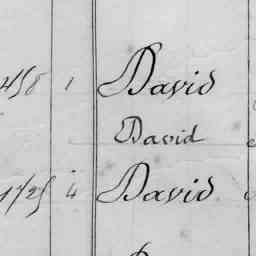 458 1 David
David
1725 4 David